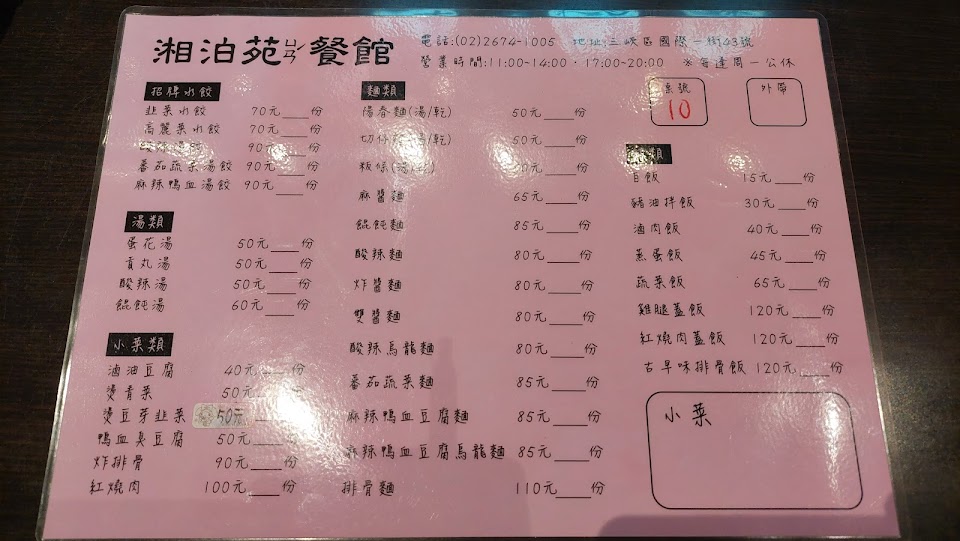 湘泊苑ㄩㄢˋ餐館
電話:(02)2674-1005 地址:三峽區國際一街43號
營業時間:11:00~14:00・17:00~20:00 ※每逢周一公休
招牌水餃
韭菜水餃 70元___份
高麗菜水餃 70元___份
90元___份
蕃茄蔬菜湯餃 90元___份
麻辣鴨血湯餃 90元___份
湯類
蛋花湯 50元___份
貢丸湯 50元___份
酸辣湯 50元___份
餛飩湯 60元___份
小菜類
滷油豆腐 40元___份
燙青菜 50元___份
燙豆芽韭菜 50元
鴨血臭豆腐 50元___份
炸排骨 90元___份
紅燒肉 100元___份
麵類
陽春麵(湯/乾) 50元___份
切仔 /乾) 50元___份
粄條 0元___份
麻醬麵 65元___份
餛飩麵 85元___份
酸辣麵 80元___份
炸醬麵 80元___份
雙醬麵 80元___份
酸辣烏龍麵 80元___份
蕃茄蔬菜麵 85元___份
麻辣鴨血豆腐麵 85元___份
麻辣鴨血豆腐烏龍麵 85元___份
排骨麵 110元___份
桌號
10
外帶
類
白飯 15元___份
豬油拌飯 30元___份
滷肉飯 40元___份
蒸蛋飯 45元___份
蔬菜飯 65元___份
雞腿蓋飯 120元___份
紅燒肉蓋飯 120元___份
古早味排骨飯 120元___份
小菜